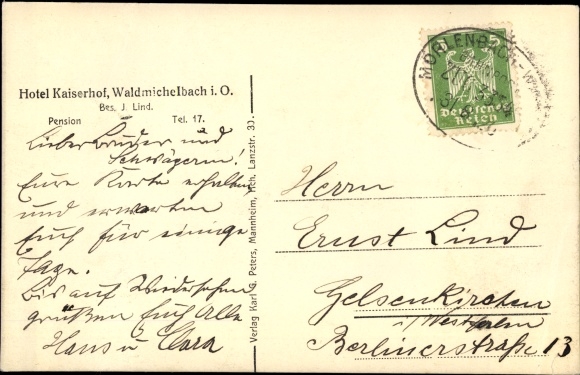 Hotel Kaiserhof, Waldmichelbach i. O.
Bes. J. Lind.
Pension Tel. 17.
Lieber Bruder und
Schwägerin!
Eure Karte erhalten
und erwarten
Euch für einige
Tage.
Bis auf Wiedersehen
grüßen Euch Alle
Hans u Clara
Verlag Karl G. Peters, Mannheim, Hch. Lanzstr. 30.
MÖRLENBACH-W
5
Deutsches
Reich
Herrn
Ernst Lind
Gelsenkirchen
i/Westfalen
Berlinerstraße 13